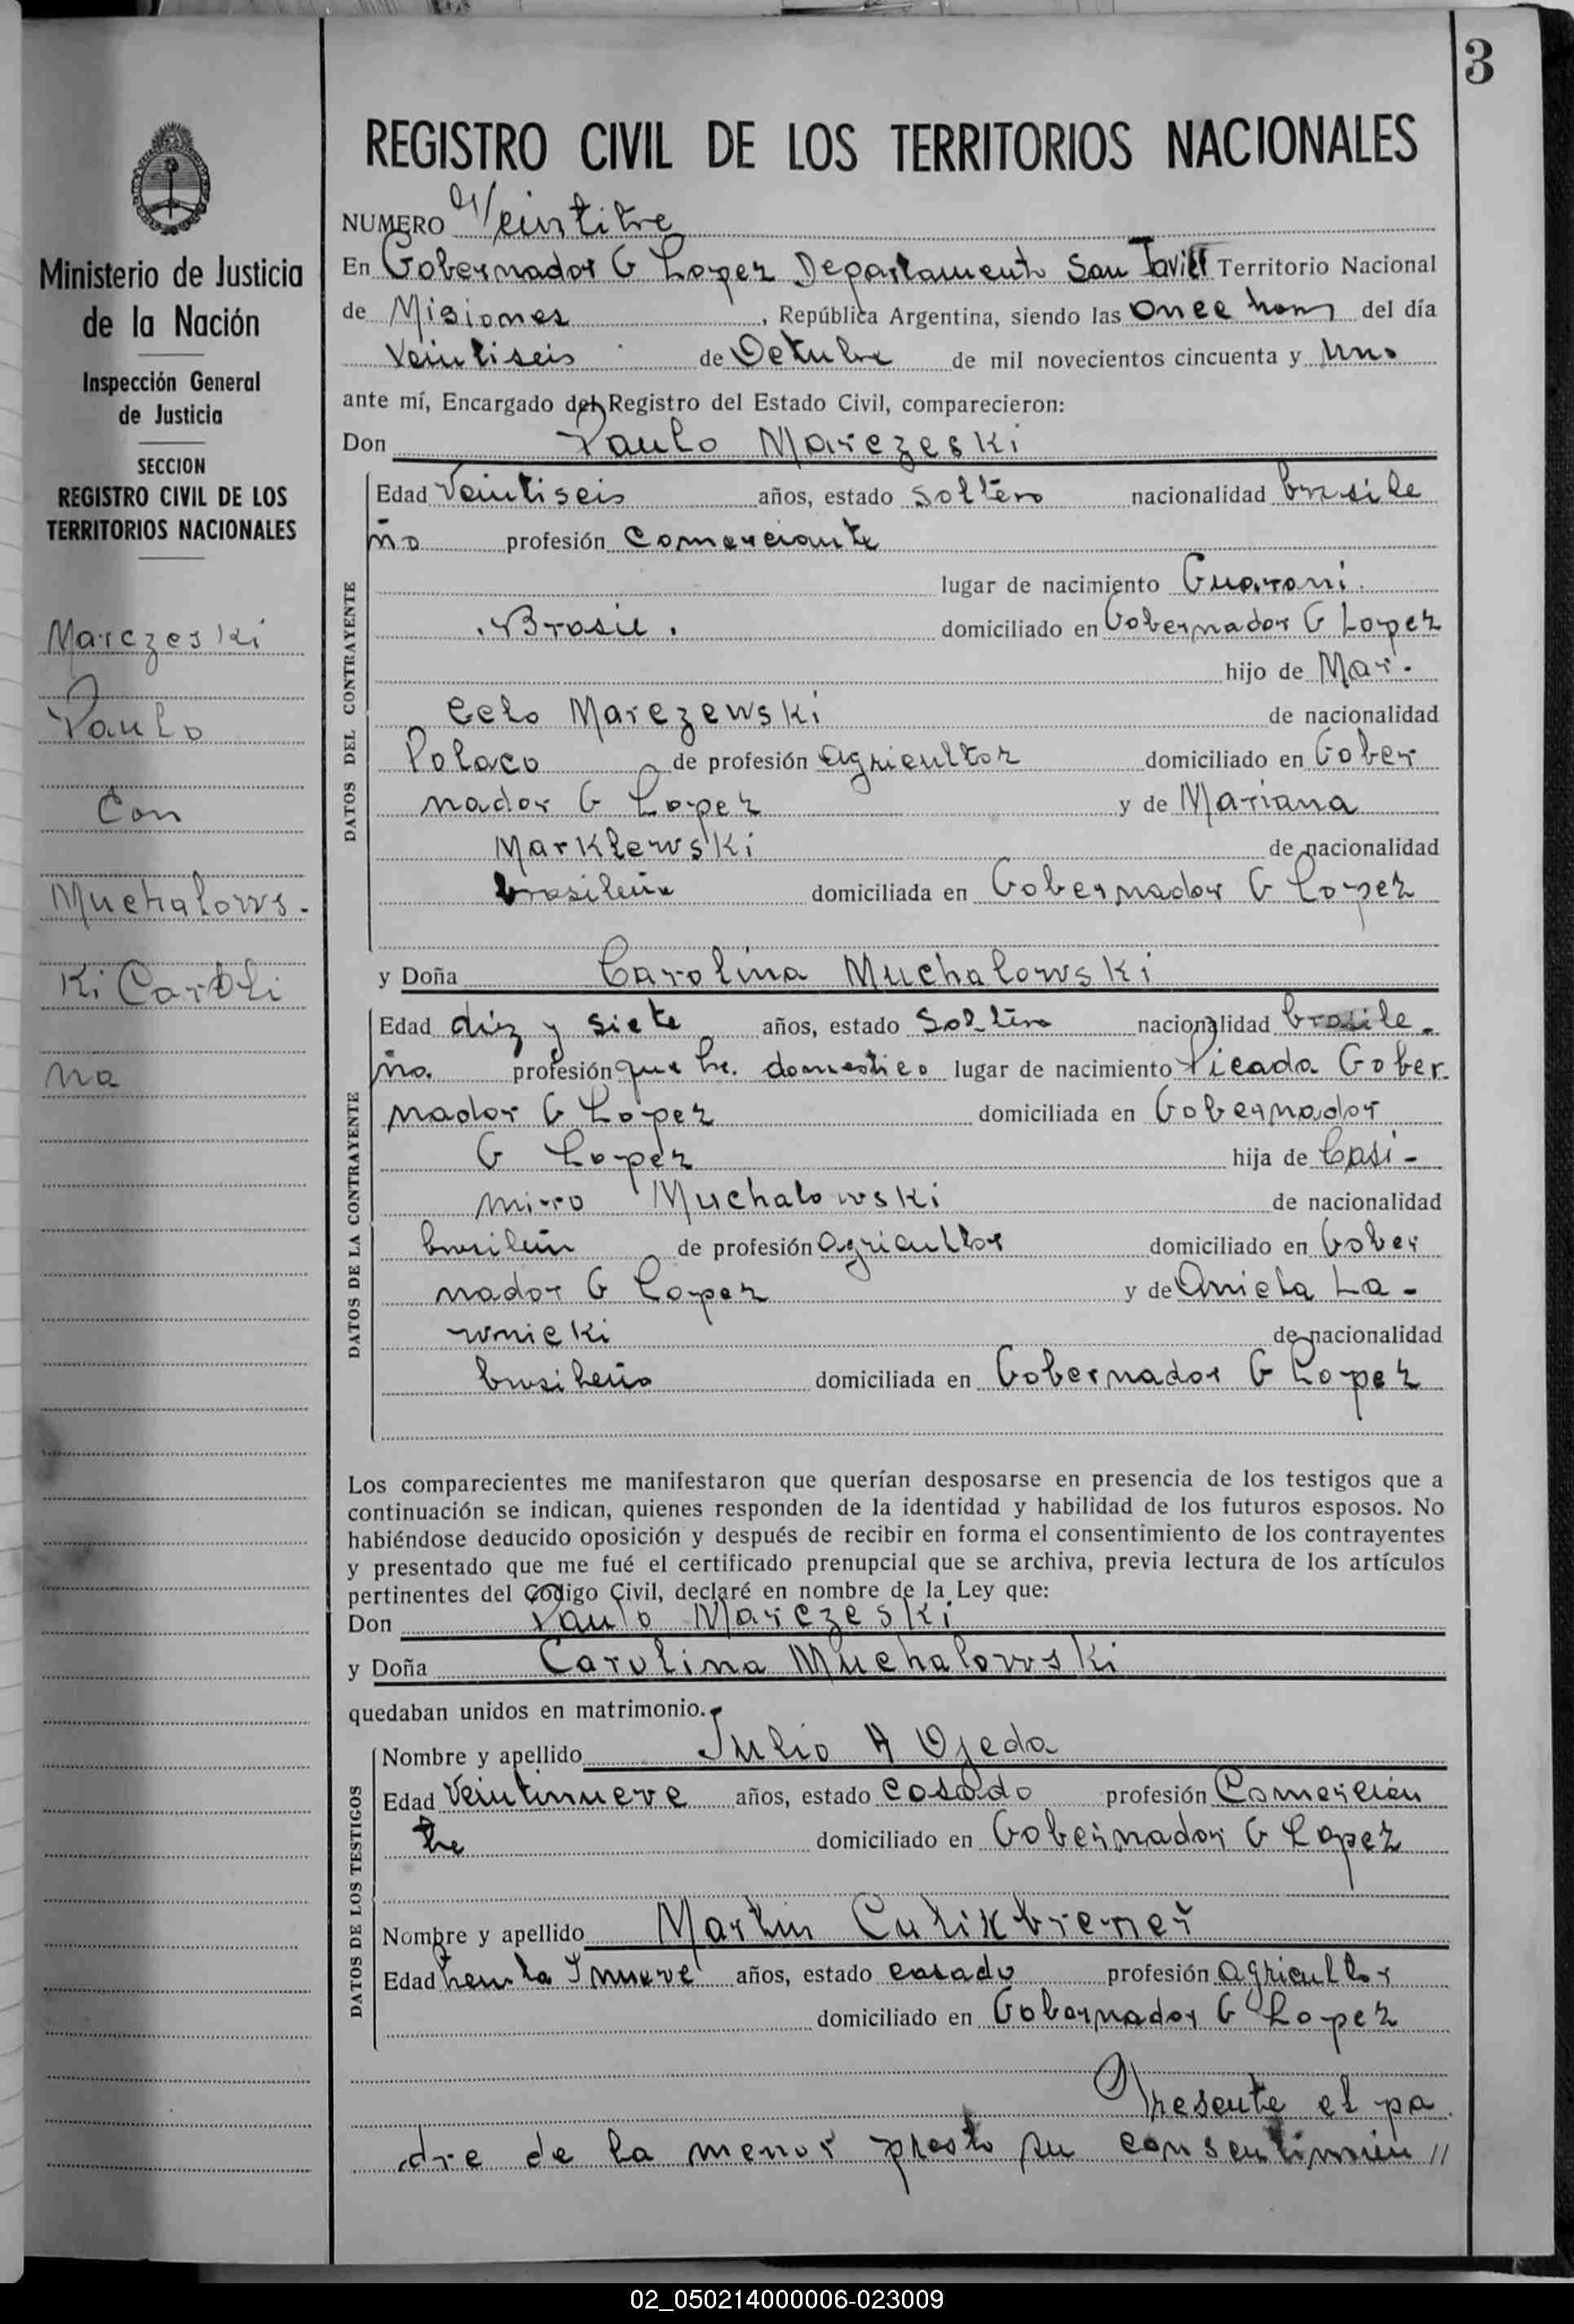 3
REGISTRO CIVIL DE LOS TERRITORIOS NACIONALES
Ministerio de Justicia
de la Nación
Inspección General
de Justicia
SECCION
REGISTRO CIVIL DE LOS
TERRITORIOS NACIONALES
Marczeski
Paulo
Con
Muchalows-
Ki Caroli
na
NUMERO Veintitre
En Gobernador G Lopez Departamento San Javier Territorio Nacional
de Misiones, República Argentina, siendo las Once horas del día
Veintiseis de Octubre de mil novecientos cincuenta y uno
ante mí, Encargado del Registro del Estado Civil, comparecieron:
Don Paulo Marczeski
DATOS DEL CONTRAYENTE
Edad Veintiseis años, estado soltero nacionalidad brasile
ño profesión Comerciante
lugar de nacimiento Guarani
.Brasil. domiciliado en Gobernador G Lopez
hijo de Mar-
celo Marczewski de nacionalidad
Polaco de profesión agricultor domiciliado en Gober
nador G Lopez y de Mariana
Marklewski de nacionalidad
brasileña domiciliada en Gobernador G Lopez
y Doña Carolina Muchalowski
DATOS DE LA CONTRAYENTE
Edad diez y siete años, estado Soltera nacionalidad brasile-
ña. profesión que hc. domestico lugar de nacimiento Picada Gober-
nador G Lopez domiciliada en Gobernador
G Lopez hija de Casi-
miro Muchalowski de nacionalidad
brasileño de profesión agricultor domiciliado en Gober
nador G Lopez y de Aniela La-
wnicki de nacionalidad
brasileña domiciliada en Gobernador G Lopez
Los comparecientes me manifestaron que querían desposarse en presencia de los testigos que a
continuación se indican, quienes responden de la identidad y habilidad de los futuros esposos. No
habiéndose deducido oposición y después de recibir en forma el consentimiento de los contrayentes
y presentado que me fué el certificado prenupcial que se archiva, previa lectura de los artículos
pertinentes del Código Civil, declaré en nombre de la Ley que:
Don Paulo Marczeski
y Doña Carolina Muchalowski
quedaban unidos en matrimonio.
DATOS DE LOS TESTIGOS
Nombre y apellido Julio A Ojeda
Edad Veintinueve años, estado Casado profesión Comercian
te domiciliado en Gobernador G Lopez
Nombre y apellido Martin
Edad treinta y nueve años, estado casado profesión agricultor
domiciliado en Gobernador G Lopez
Presente el pa
dre de la menor presto su consentimien //
02_050214000006-023009